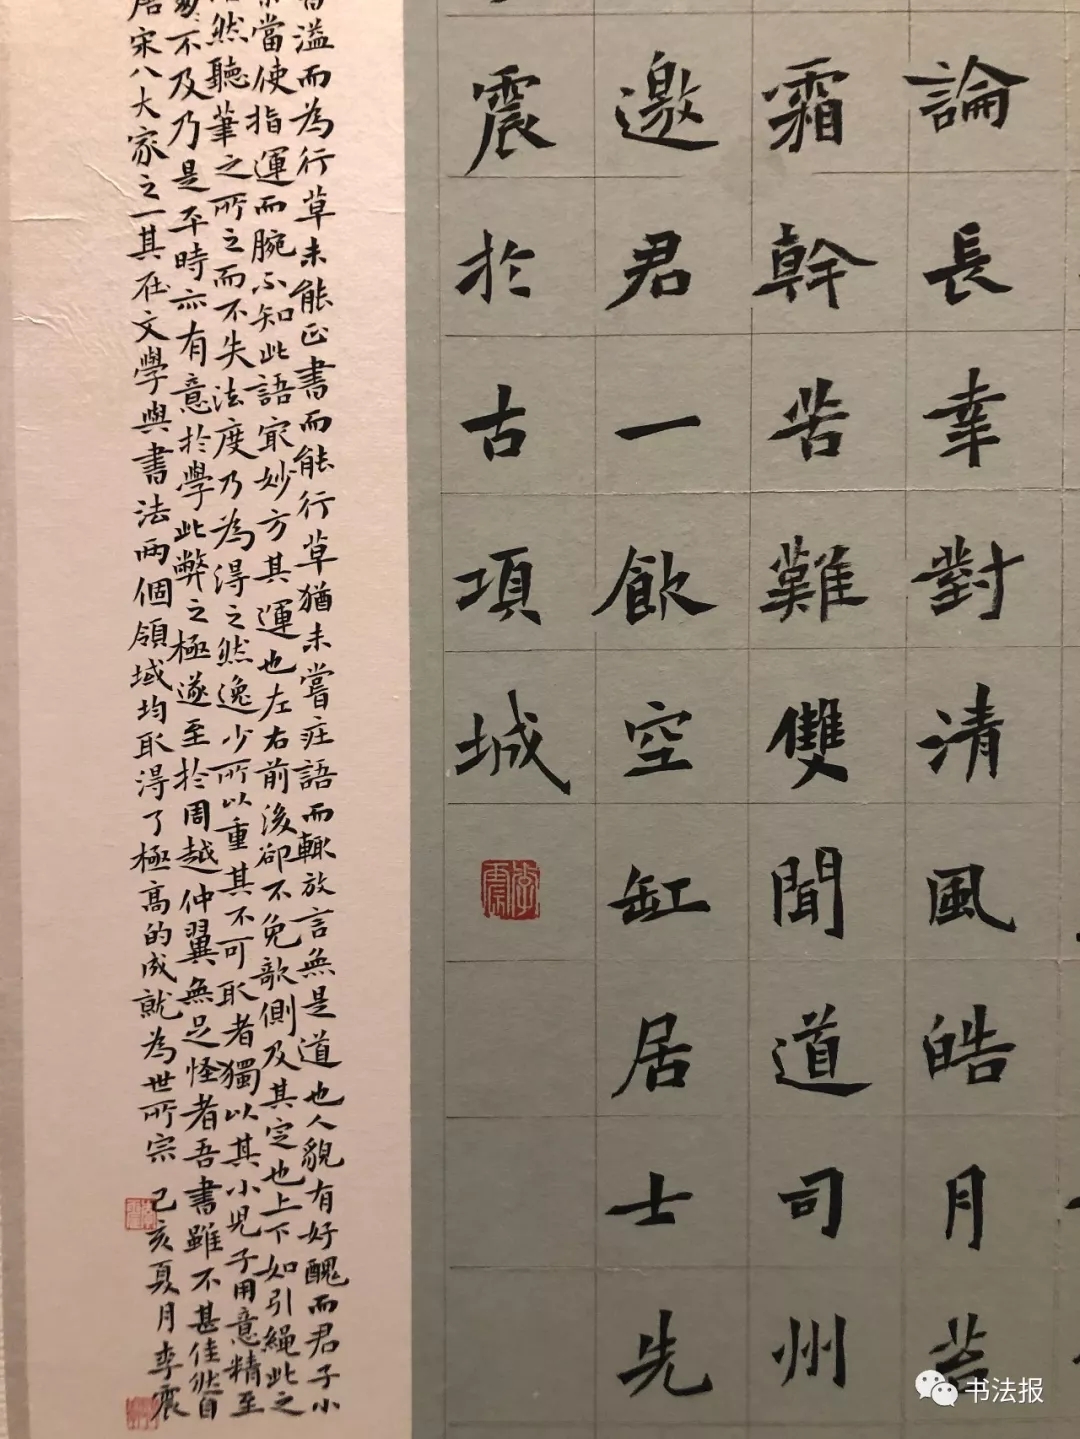 論長幸對清風皓月苔
霜幹苦難雙聞道司州
邀君一飲空缸居士先
震於古項城
李震
溢而為行草未能正書而能行草猶未嘗莊語而輒放言無是道也人貌有好醜而君子小
當使指運而腕不知此語寂妙方其運也左右前後卻不免欹側及其定也上下如引繩此之
然聽筆之所之而不失法度乃為得之然逸少所以重其不可取者獨以其小兒子用意精至
不及乃是平時亦有意於學此弊之極遂至於周越仲翼無足怪者吾書雖不甚佳然自
唐宋八大家之一其在文學與書法兩個領域均取得了極高的成就為世所宗 己亥夏月李震
书法报